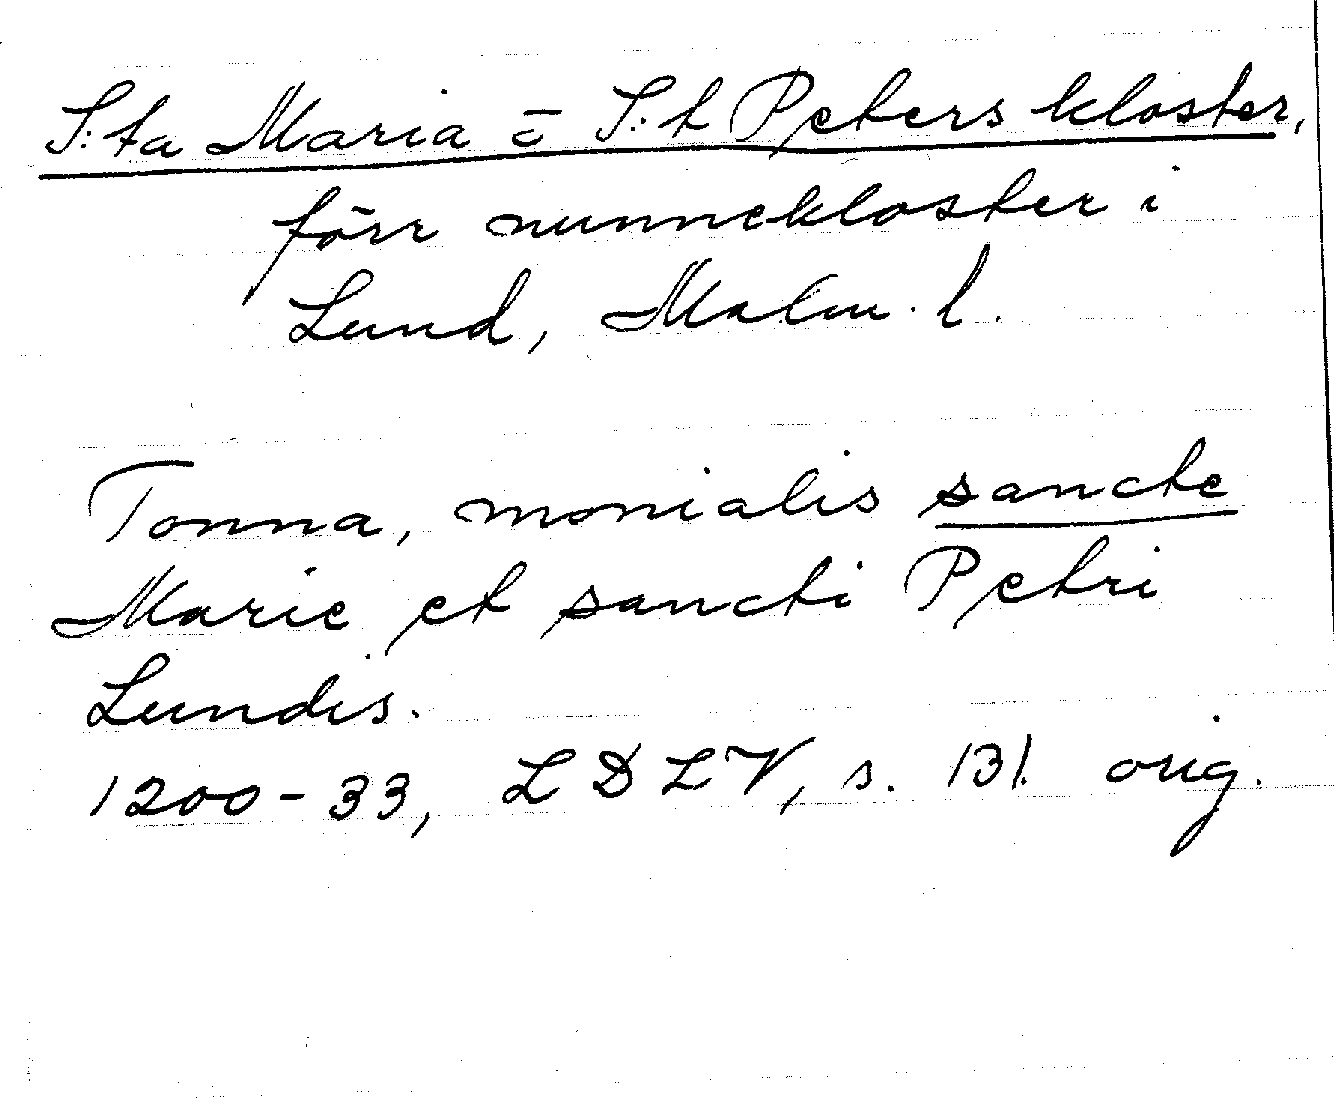 S:ta Maria o S:t Peters kloster,
förr nunnekloster i
Lund, Malm. l.
Tonna, monialis sancte
Marie et sancti Petri
Lundis.
1200-33, LDLV, s. 131. orig.